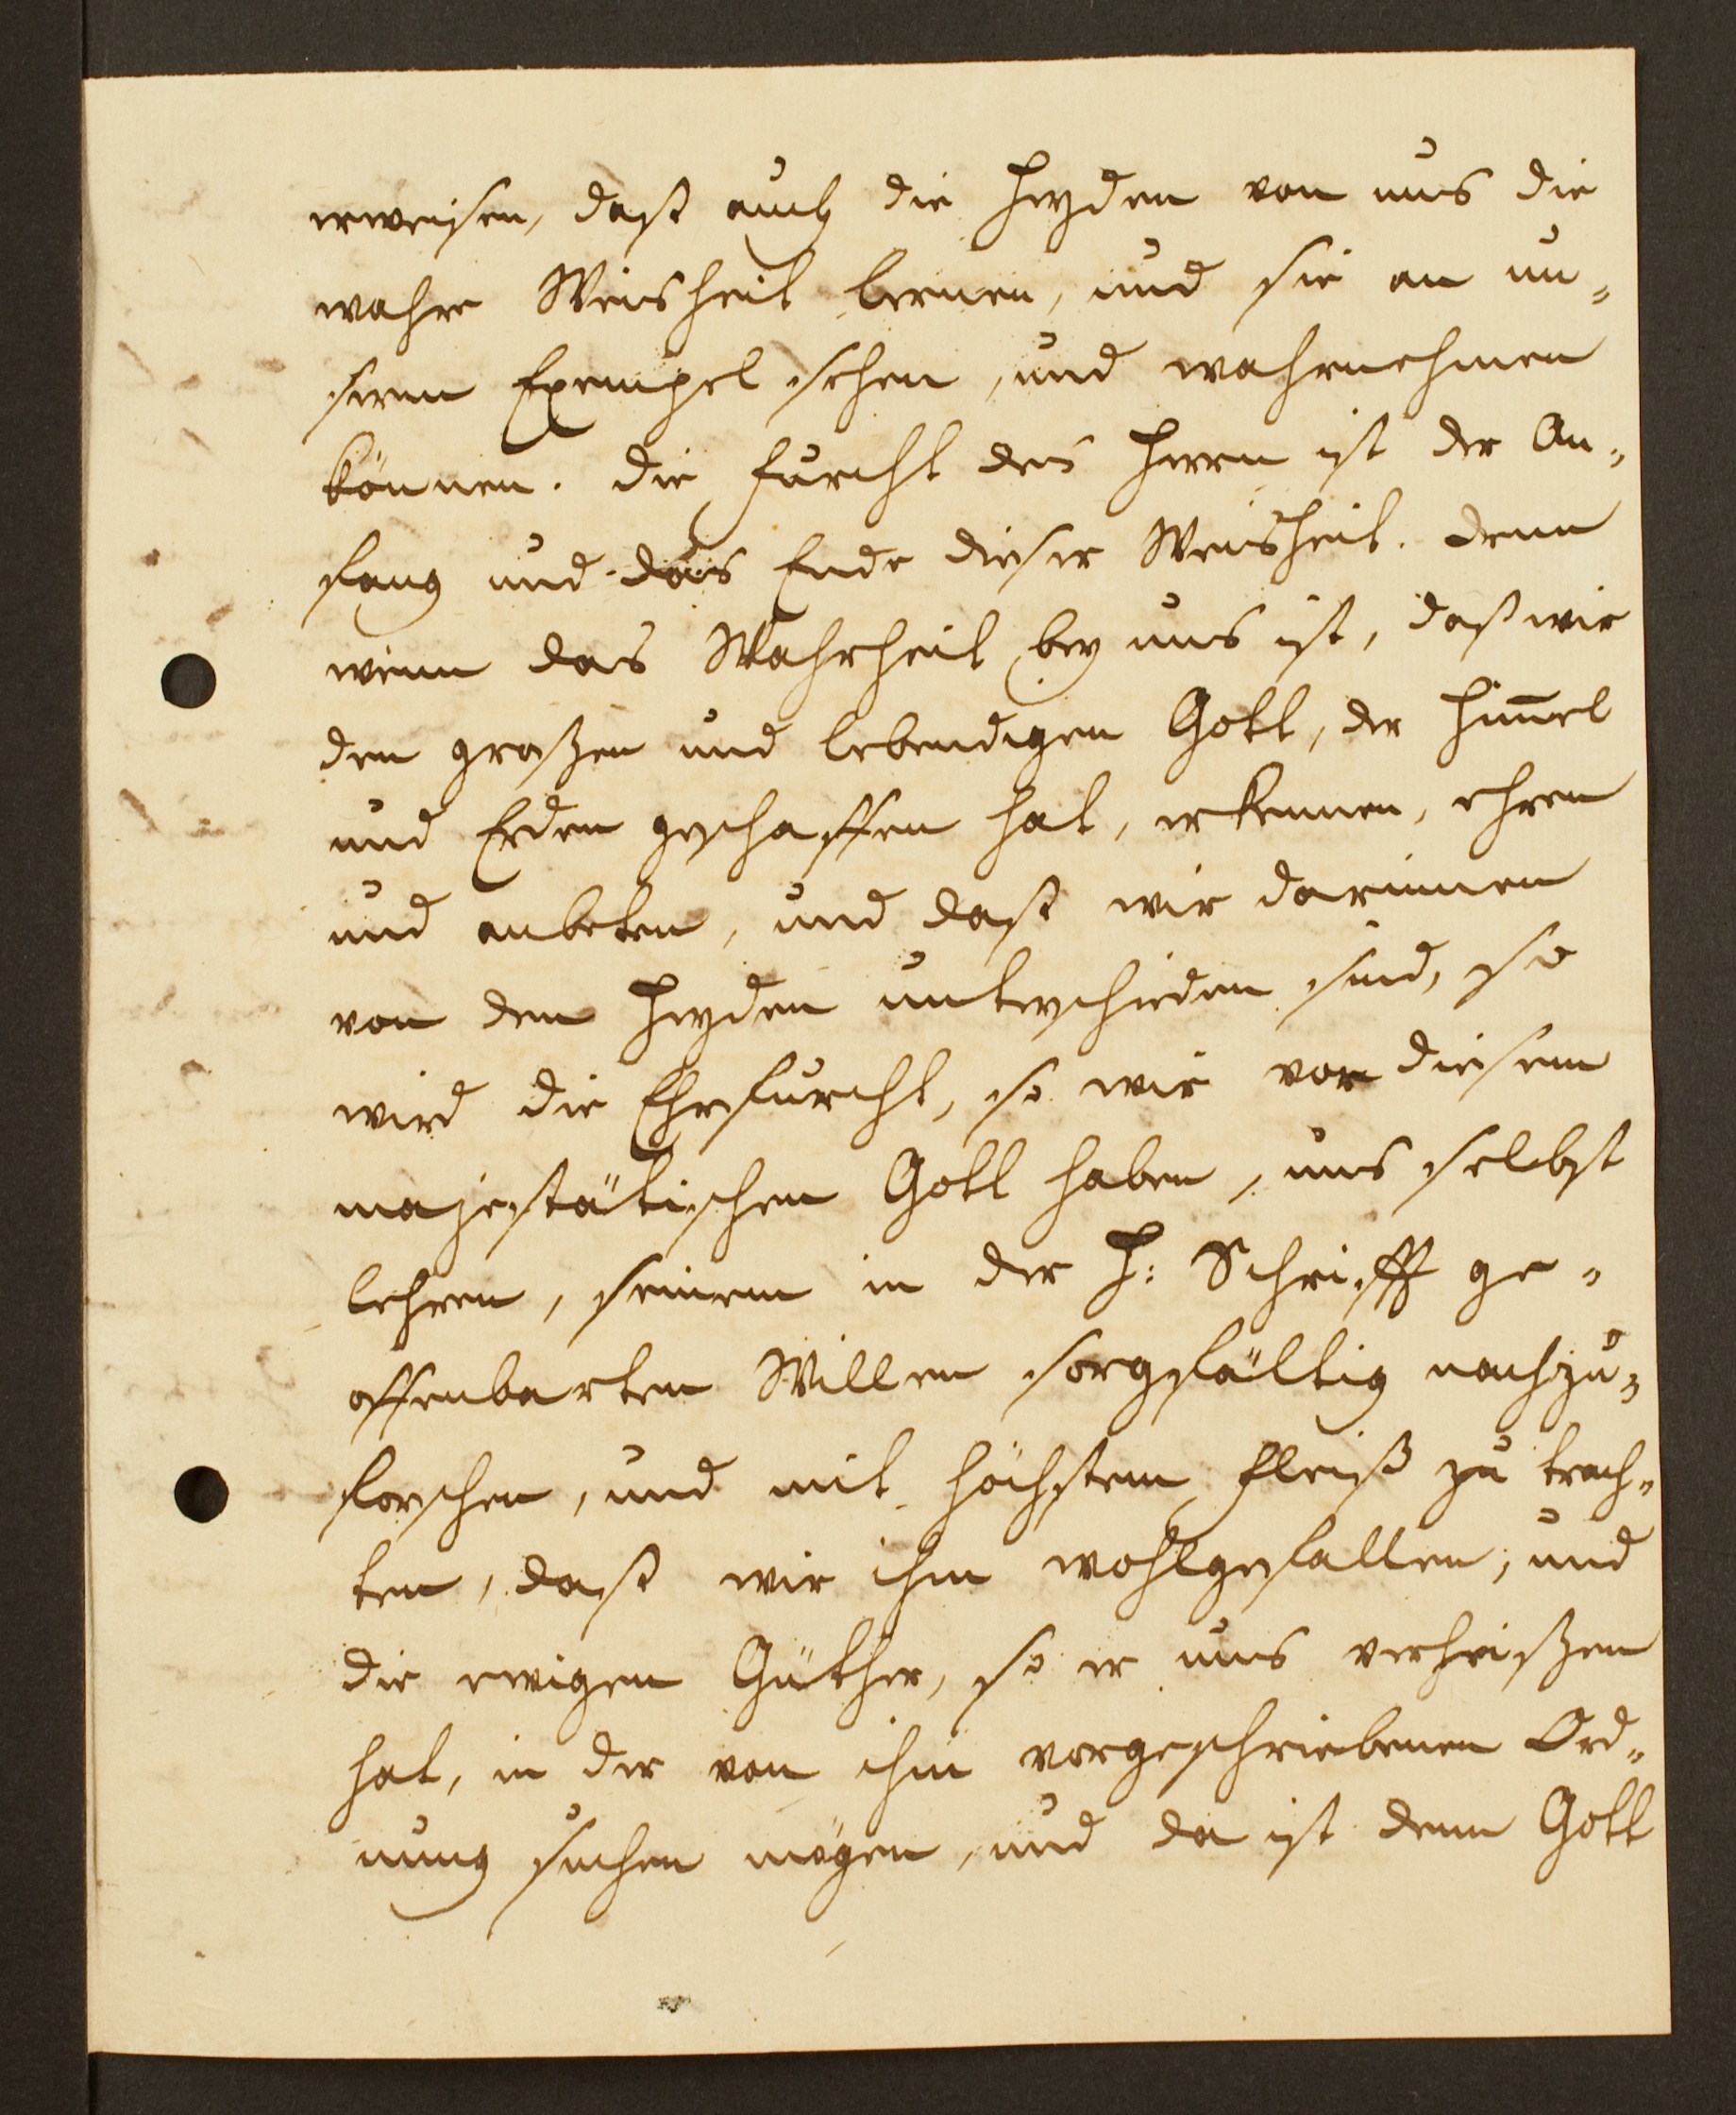 erweisen, dasß auch die Heyden von uns die
wahre Weisheit lernen, und sie an un-
serm Exempel sehen, und wahrnehmen
können. Die Furcht des Herrn ist der An-
fang und das Ende dieser Weisheit. Denn
wenn das Wahrheit bey uns ist, daß wir
den großen und lebendigen Gott, der Him̅el
und Erden geschaffen hat, erkennen, ehren
und anbeten, und daß wir darinnen
von den Heyden unterschieden sind, so
wird die Ehrfurcht, so wir vor diesem
majestätischen Gott haben, uns selbst
lehren, seinem in der H: Schrifft ge-
offenbarten Willen sorgfältig nachzu-
forschen, und mit höchstem Fleiß zu trach-
ten, daß wir ihm wohlgefallen, und
die ewigen Güther, so er uns verheißen
hat, in der von ihm vorgeschriebenen Ord-
nung suchen mögen, und da ist denn Gott